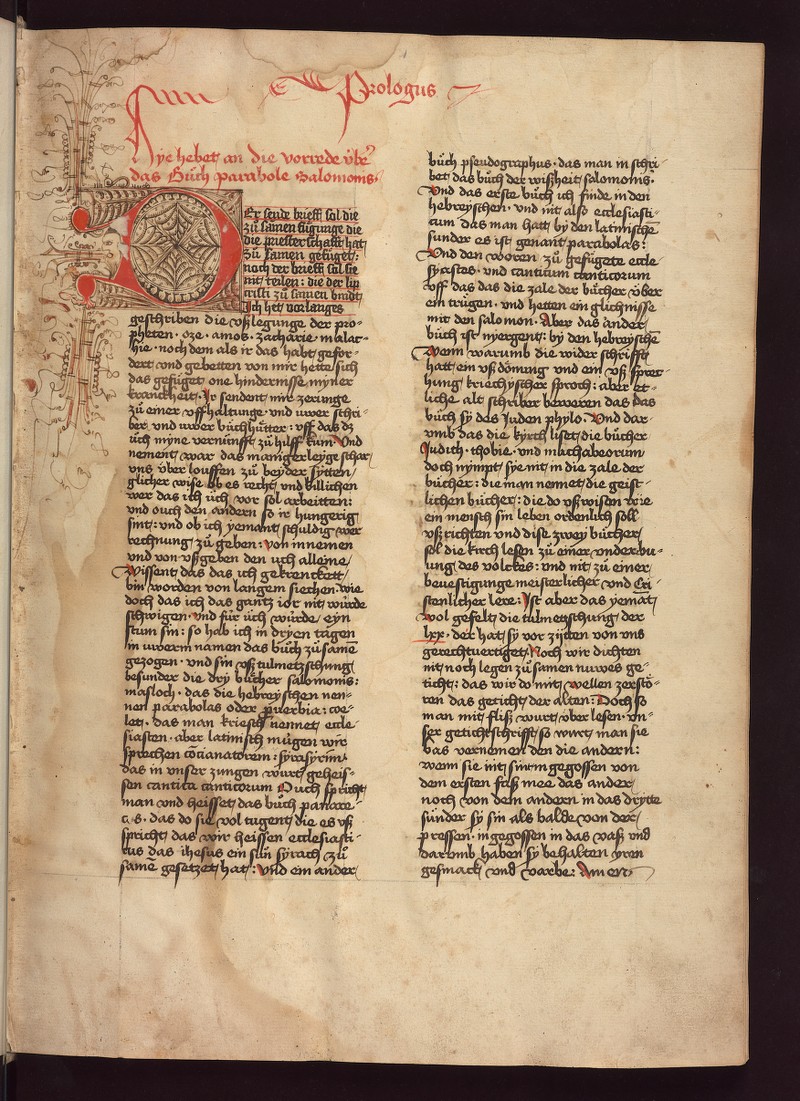 Prologus
Hye hebet an die vorrede vber
das Buch parabole Salomonis
Er sende brieff sol die
zů samen fůgunge die
die priesterschafft hat
zů samen gefůget:
noch der brieff sol sie
nit teilen: die der lip
cristi zů samen bindt
Ich het vorlanges
geschriben die vßlegunge der pro-
pheten · oze · amos · zacharie malac-
hie · noch dem als ir das habt gefor-
dert vnd gebetten von mir hette sich
das gefůget one hindernisse myner
kranckheit · Ir sendent mir zerunge
zů einer vffhaltunge · vnd uwer schri-
ber vnd uwer bůchhůtter: vff das dz
ůch myne vernůnfft zů hilff kum · Vnd
nement war das manigerleyge schar
vns vber louffen zů beyder sytten
glicher wise ob es recht vnd billichen
wer das ich ůch vor sol arbeitten:
vnd ouch den andern so ir hungerig
sint: vnd ob ich yemant schuldig wer
rechnung zů geben: von innemen
vnd von vßgeben den uch alleine
Wissent das das ich gekrenckett
bin worden von langem siechen · wie
doch das ich das gantz ior nit wůrde
schwigen · vnd fůr ůch wůrde eyn
stum sin: so hab ich in dryen tagen
in uwerm namen das bůch zů samē
gezogen · vnd sin vß tulmetzschung
besunder die dry bůcher salomonis:
masloch · das die hebreyschen nen-
nen parabolas oder ꝓuerbia: coe-
let · das man kriesch nennet eccle
siasten · aber latinisch můgen wir
sprechen cōcianatorem: syrasyrim
das in vnser zungen wurt geheis-
sen cantica canticorum Ouch spricht
man vnd heisset das bůch panare-
t · s · das do sie vol tugent die es vß
spricht das wir heissen ecclesiasti-
cus das ihesus ein sůn syrach zů
samē gesetzet hat: vnd ein ander
bůch pseudographus · das man in schri-
bet das bůch der wißheit salomonis ·
Vnd das erste bůch ich finde in den
hebreyschen · vnd nit also ecclesiasti-
cum das man hatt by den latinischē
sunder es ist genant parabolas:
Vnd den woren zů gefůgete eccle
syastes · vnd canticum canticorum
vff das das die zale der bůcher vber
ein trůgen · vnd hetten ein glichnisse
mit den salomon · Aber das ander
bůch ist nyergent: by den hebreyschē
Wenn warumb die wider schrifft
hatt ein vß dönung vnd ein vß sprec-
hung kriechyscher sproch: aber et-
liche alt schriber beweren das das
bůch sy des Juden phylo · Vnd dar
vmb das die kyrch liset die bůcher
Judich · thobie · vnd machabeorum
doch nympt sye nit in die zale der
bůcher: die man nemet die geist-
lichen bůcher: die do vß wisen wie
ein mensch sin leben ordenlich soll
vß richten vnd dise zwey bůcher
sol die kirch lesen zů einer vnder bu-
ung des volckes: vnd nit zů einer
bevestigunge meisterlicher vnd Cri-
stenlicher lere: Ist aber das yemāt
wol gefelt die tulmetzschung der
lxx · der hat sy vor zijtten von vns
gerechtuertiget Noch wir dichten
nit noch legen zů samen nuwes ge-
ticht: das wir do mit wellen zerstö-
ren das geticht der alten: Doch so
man mit fliß wurt vber lesen · vn-
ser getichtschrifft so wurt man sie
bas vernemen den die andern:
wenn sie nit sint in gegossen von
dem ersten faß mee das ander
noch von dem andern in das drytte
sunder sy sin als balde von der
pressen · in gegossen in das vaß vnd
darumb haben sy behalten yren
gesmack vnd varbe: Amen